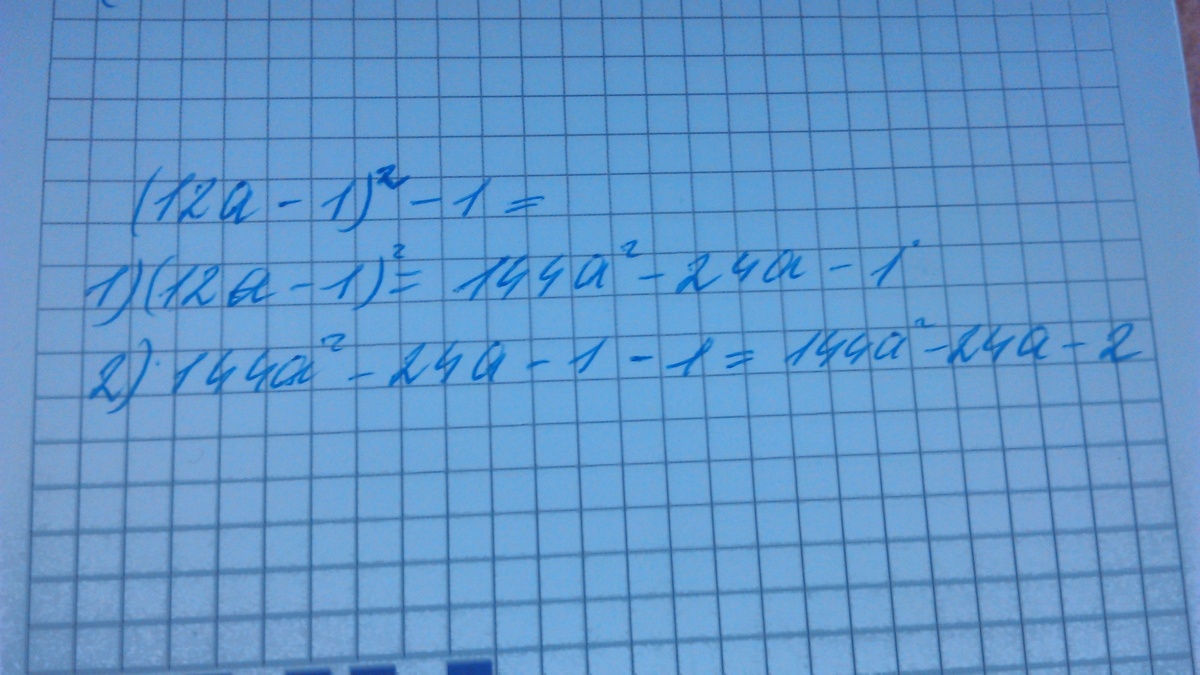 (12a - 1)² - 1 =
1) (12a - 1)² = 144a² - 24a - 1
2) 144a² - 24a - 1 - 1 = 144a² - 24a - 2